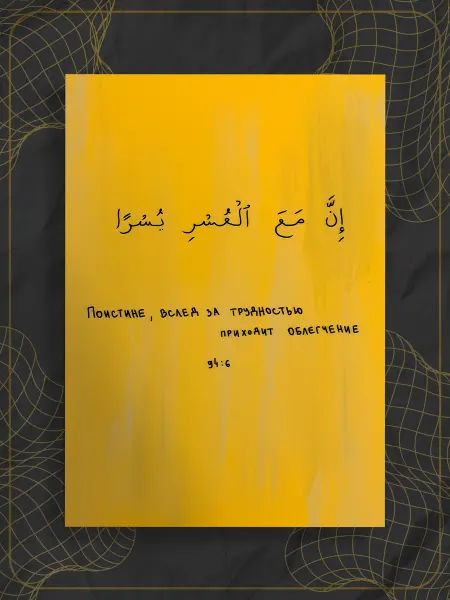 إِنَّ مَعَ ٱلْعُسْرِ يُسْرًا
Поистине, вслед за трудностью
приходит облегчение
94:6